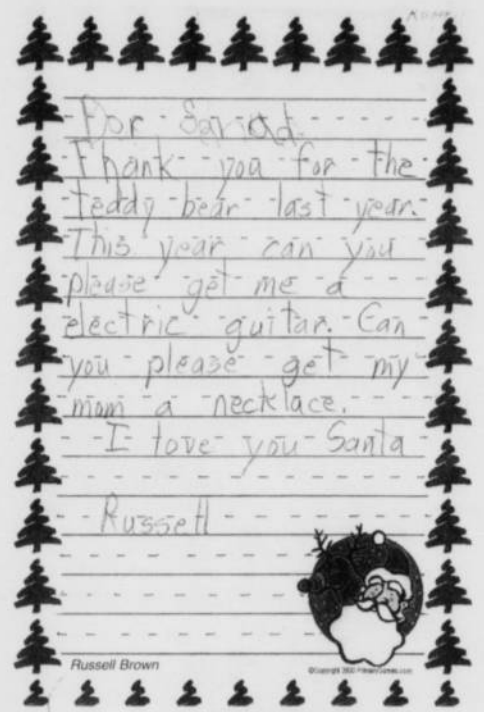 For
Thank you for the
teddy bear last year.
This year can you
please get me a
electric guitar. Can
you please get my
mom a necklace.
I love you Santa
Russell
Russell Brown